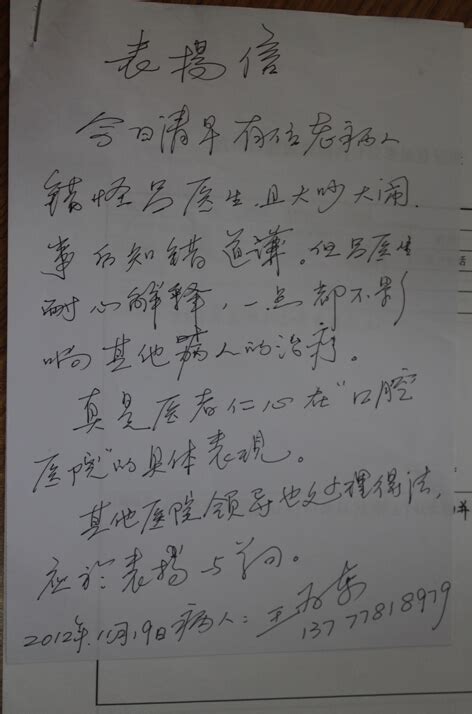 表揚信
今日清早有位老病人
錯怪吕医生且大吵大闹,
事后知錯道谦。但吕医生
耐心解释，一点都不影
响其他病人的治疗。
真是医者仁心在"口腔
医院"的具体表現。
其他医院领导也处理得法,
应於表揚与
2012年11月19日病人：王
13777818979